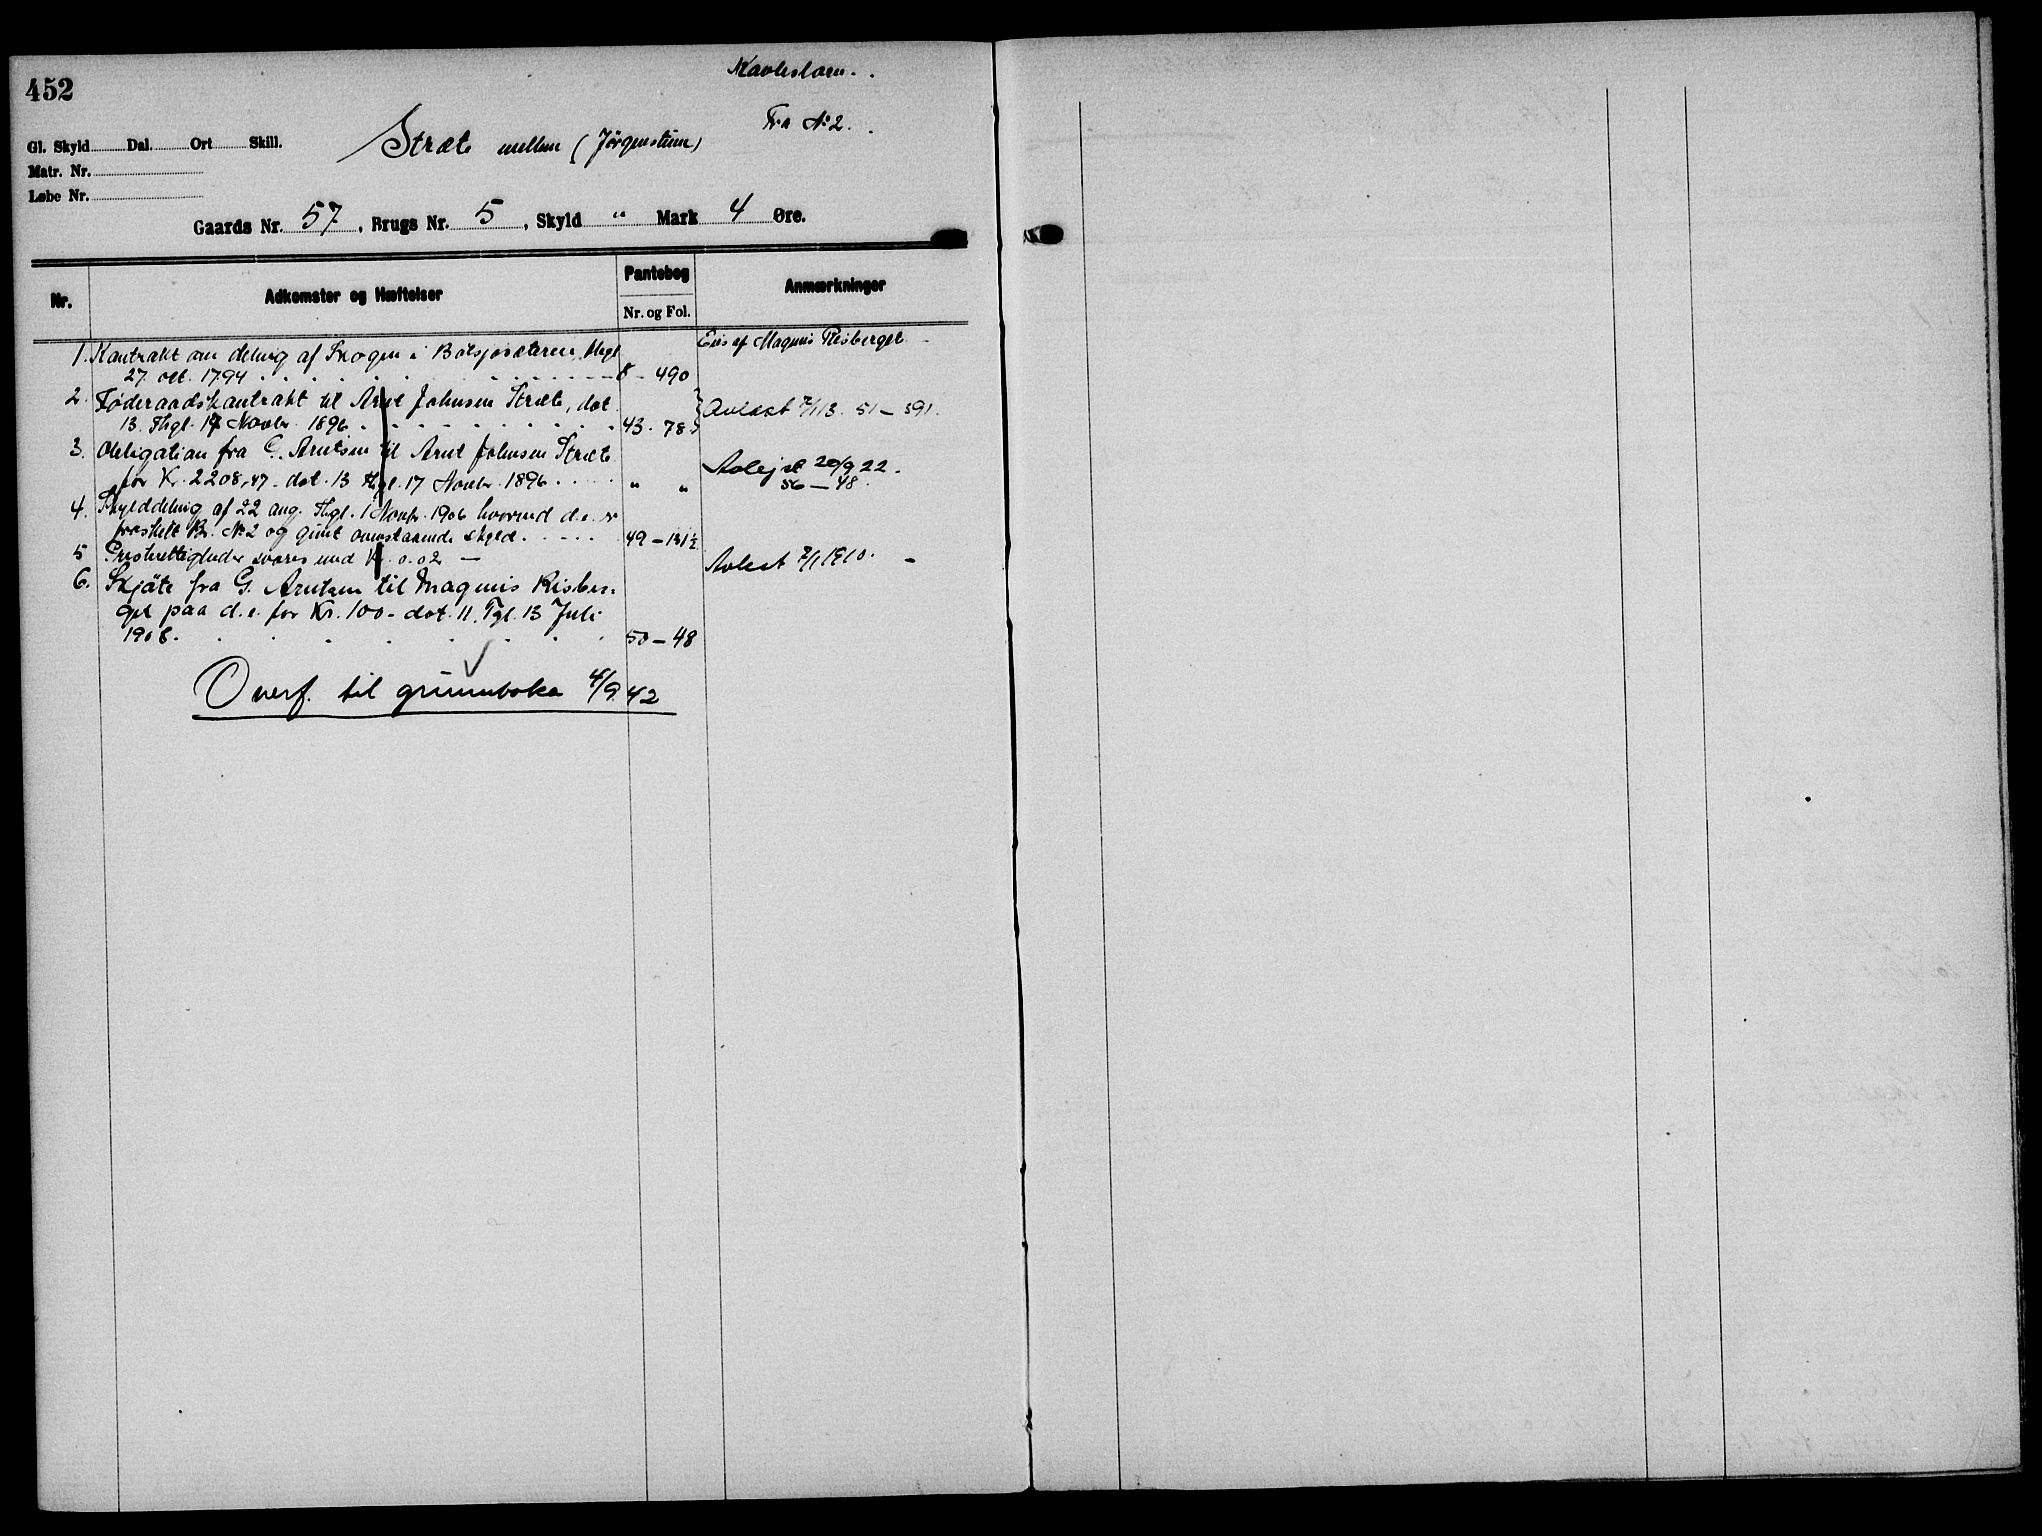 452
Kavleslaen.
Fra No 2.
Gl. Skyld Dal. Ort Skill.
Stræte mellem (Jörgenstuen)
Matr. Nr.
Løbe Nr.
Gaards Nr. 57, Brugs Nr. 5, Skyld " Mark 4 Øre.
Nr. Adkomster og Hæftelser Pantebog Nr. og Fol. Anmærkninger
Eies af Magnus Risberget.
1. Kontrakt om deling af Skogen i Botsjøsæteren, thgl
27. oct. 1794 8 - 490
2. Føderaadskontrakt til Arnt Johnsen Stræte, dat.
13. Thgl. 17 Novbr. 1896 43 - 78 Avlæst 7/1 13. 51 - 391.
3. Obligation fra G. Arntsen til Arnt Johnsen Stræte
for Kr. 2208,47 - dat. 13 thgl. 17 Novbr. 1896 " " Avlyst 20/9 22.
56 - 48.
4. Skylddeling af 22 aug. Thgl. 1 Novbr. 1906 hvorved d.e. er
fraskilt Br. No 2 og givet ovenstaaende skyld. 49 - 131½
5 Presterettigheder svares med Kr. 0.02 — Avløst 7/1 1910. -
6. Skjöte fra G. Arntsen til Magnus Risber-
get paa d.e. for Kr. 100 - dat. 11. Tgl. 13 Juli
1908. 50 - 48
Overf. til grunnboka 4/9.42